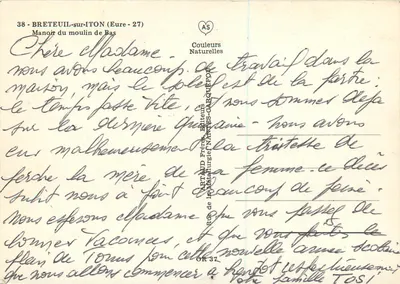 38 - BRETEUIL-sur-ITON (Eure - 27)
Manoir du moulin de Bas
AS
Couleurs
Naturelles
Chère Madame.
nous avons beaucoup de travail dans la
maison, mais le soleil est de la partie.
le temps passe vite, et nous sommes déjà
sur la dernière quinzaine - nous avons
eus malheureusement la tristesse de
perdre la mère de ma femme. ce décès
subit nous a fait beaucoup de peine.
nous espérons Madame que vous passez de
bonnes vacances, et que vous faites le
plein de Tonus pour cette nouvelle année scolaire
que nous allons commencer à bientôt respectueusement
famille TOSI